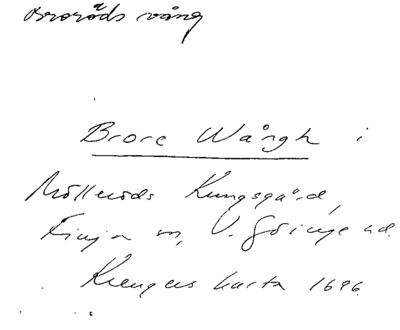 Broröds vång
Brore Wångh i
Mölleröds Kungsgård,
Finja sn, V. Göinge hd.
Krengers karta 1696.